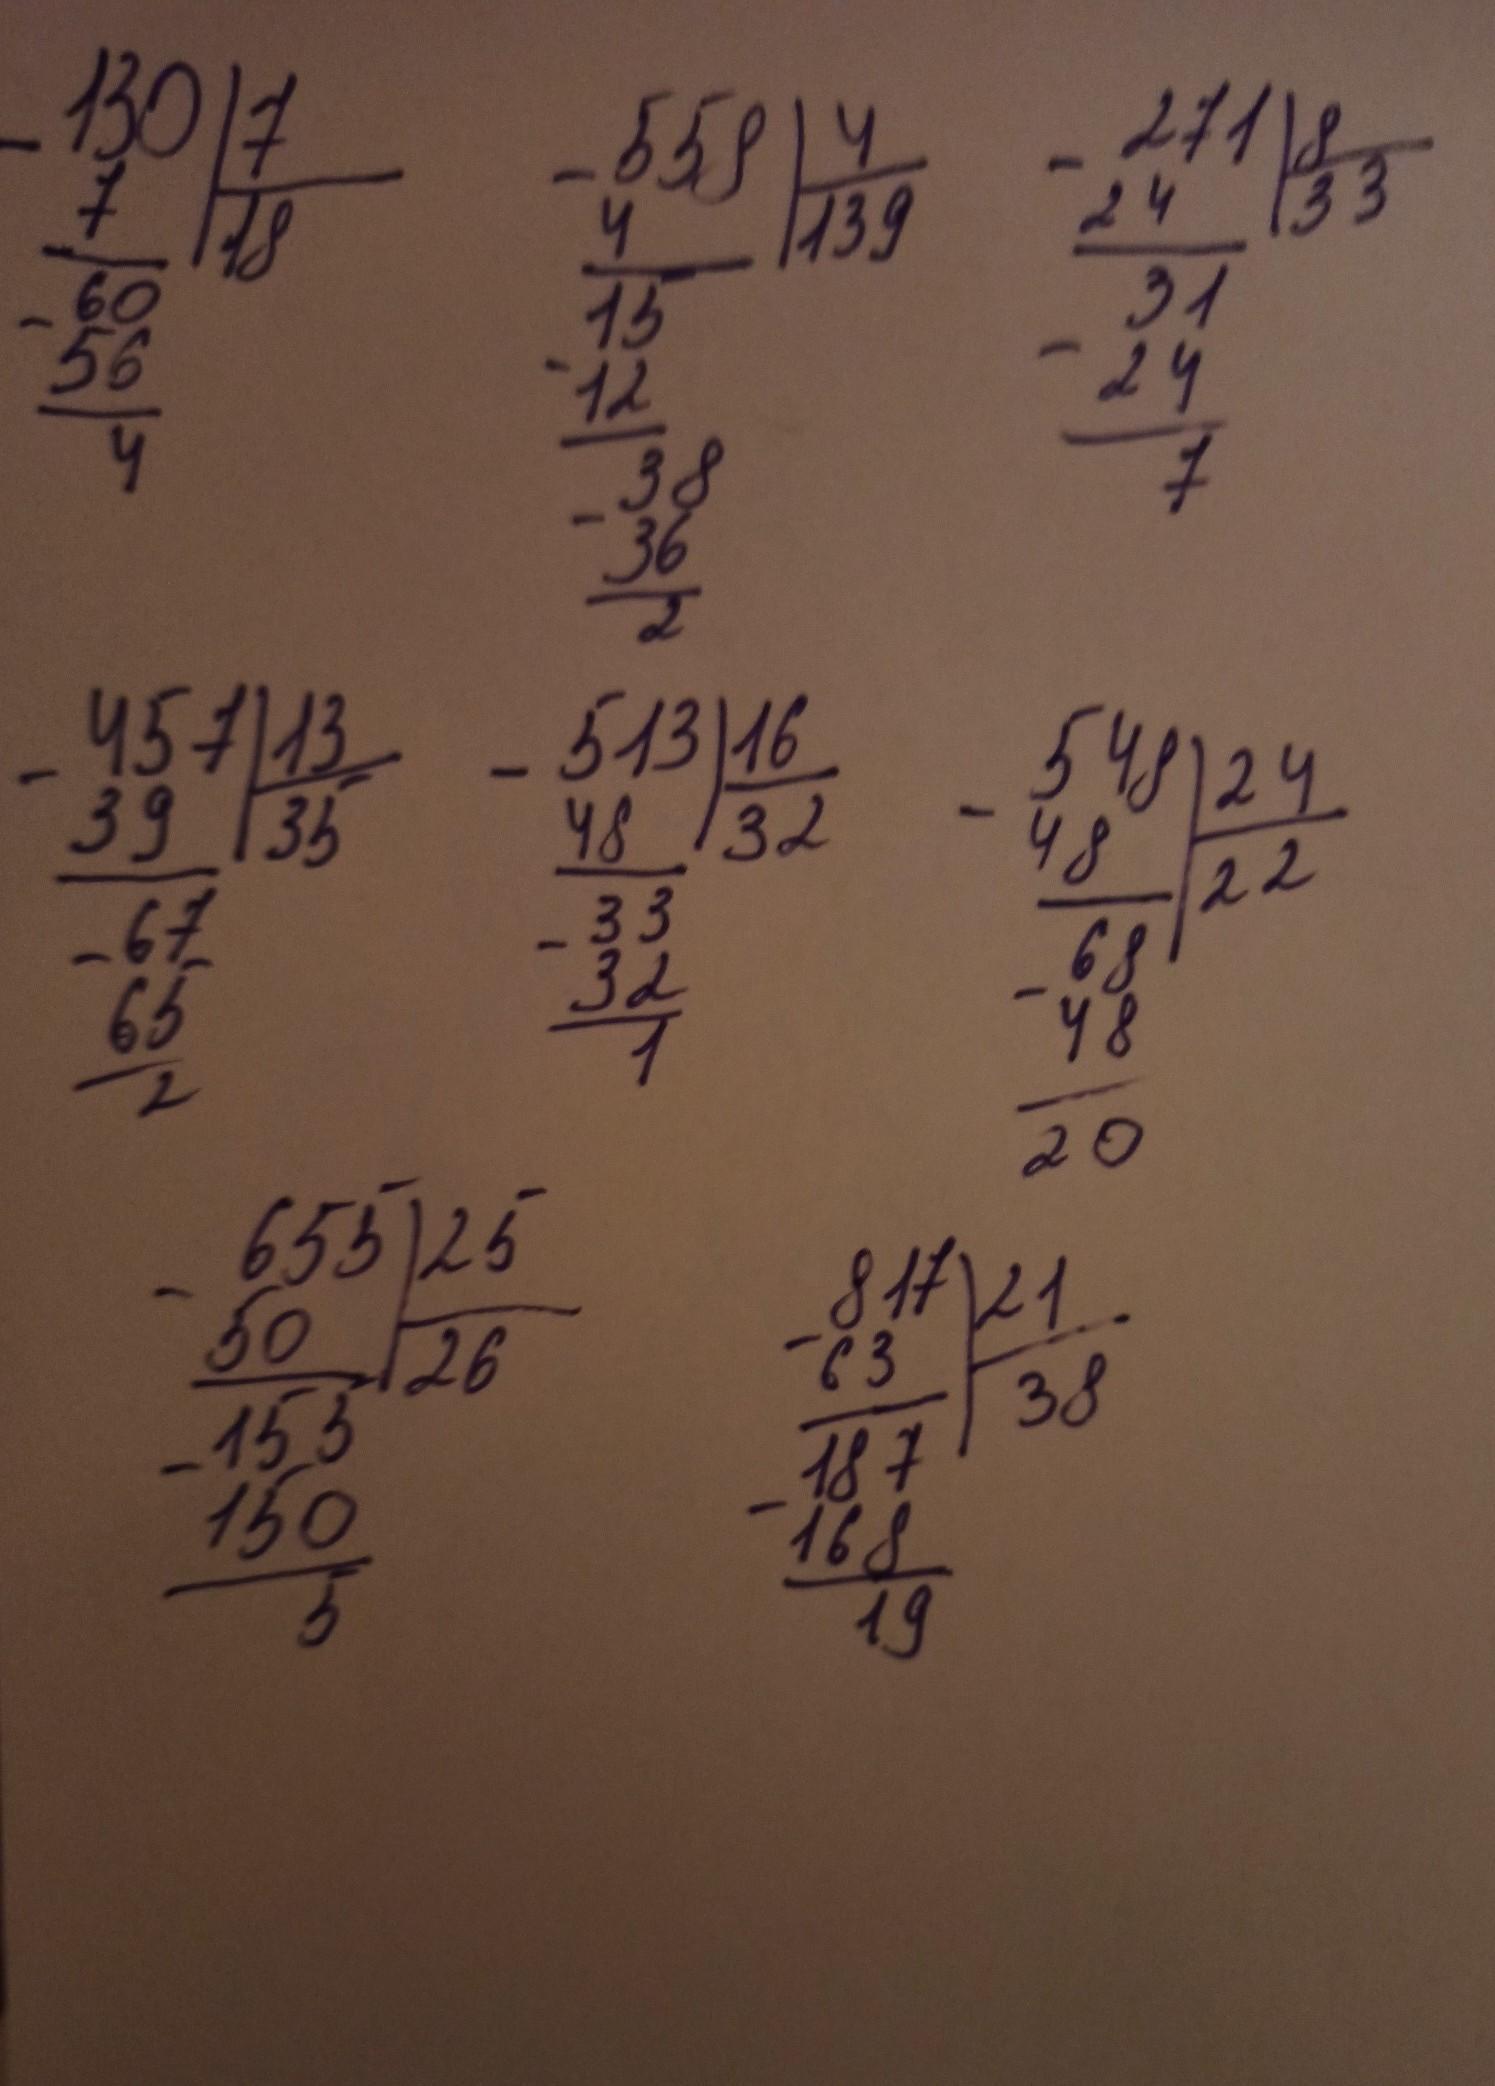 - 130 | 7
7 | 18
- 60
56
4
- 558 | 4
4 | 139
15
- 12
38
- 36
2
- 271 | 8
24 | 33
31
- 24
7
- 457 | 13
39 | 35
- 67
65
2
- 513 | 16
48 | 32
- 33
32
1
- 548 | 24
48 | 22
- 68
48
20
- 655 | 25
50 | 26
- 155
150
5
- 817 | 21
63 | 38
187
- 168
19